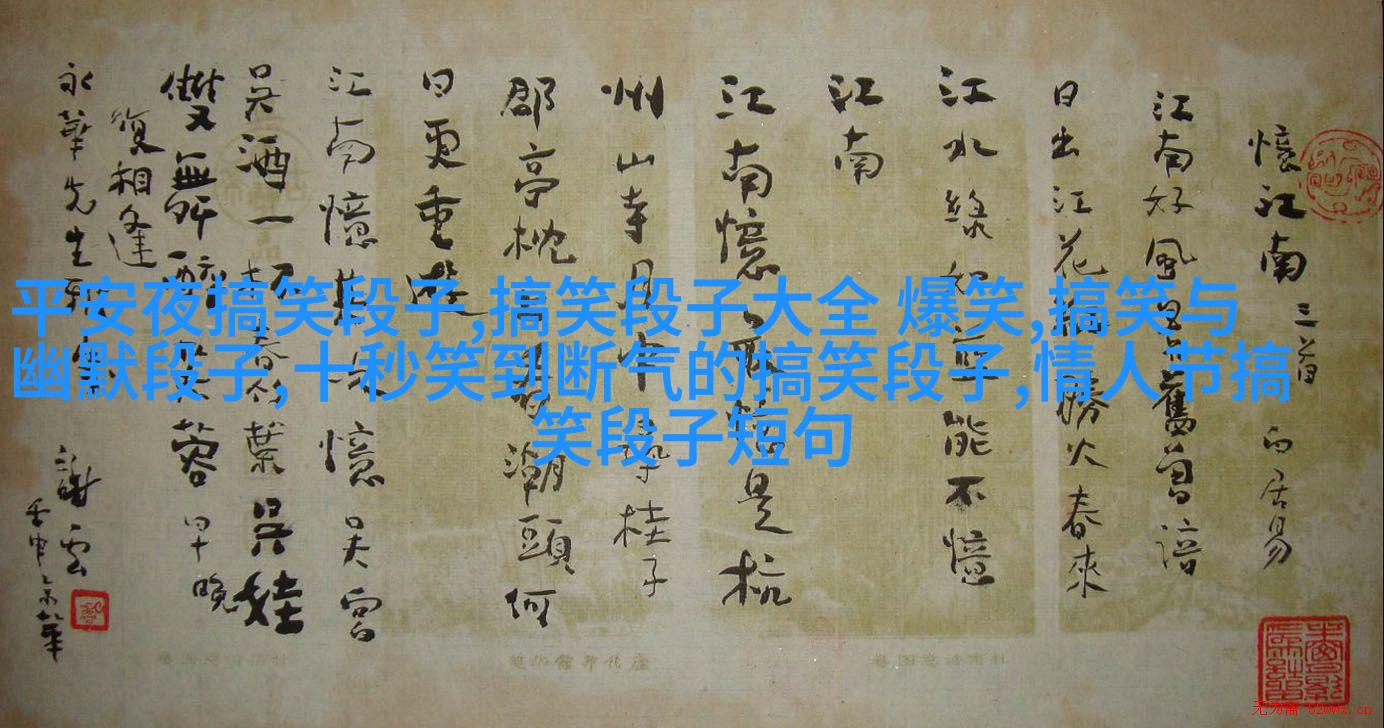 憶江南 三首 白居易
江南好風景舊曾諳
日出江花紅勝火春來
江水綠如藍能不憶
江南
江南憶最憶是杭
州山寺月中尋桂子
郡亭枕上看潮頭何
日更重遊
江南憶其次憶吳宮
吳酒一杯春竹葉吳娃
雙舞醉芙蓉早晚
復相逢
永華先生
謝雲
平安夜搞笑段子,搞笑段子大全 爆笑,搞笑与
幽默段子,十秒笑到断气的搞笑段子,情人节搞
笑段子短句